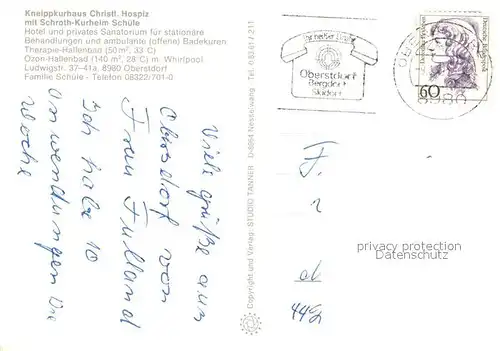 Kneippkurhaus Christl. Hospiz
mit Schroth-Kurheim Schüle
Hotel und privates Sanatorium für stationäre
Behandlungen und ambulante (offene) Badekuren
Therapie-Hallenbad (50 m², 33 C)
Ozon-Hallenbad (140 m², 28°C) m. Whirlpool
Ludwigstr. 37-41a, 8980 Oberstdorf
Familie Schüle - Telefon 08322/701-0
Viele grüße aus
Oberstdorf von
Frau Fulland
Ich habe 10
Anwendungen die
Woche
Copyright und Verlag: STUDIO TANNER D-8964 Nesselwang Tel. 08361 / 211
Oberstdorf
Bergdorf
Skidorf
8980
Deutsche Bundespost
60
F.
privacy protection
Datenschutz